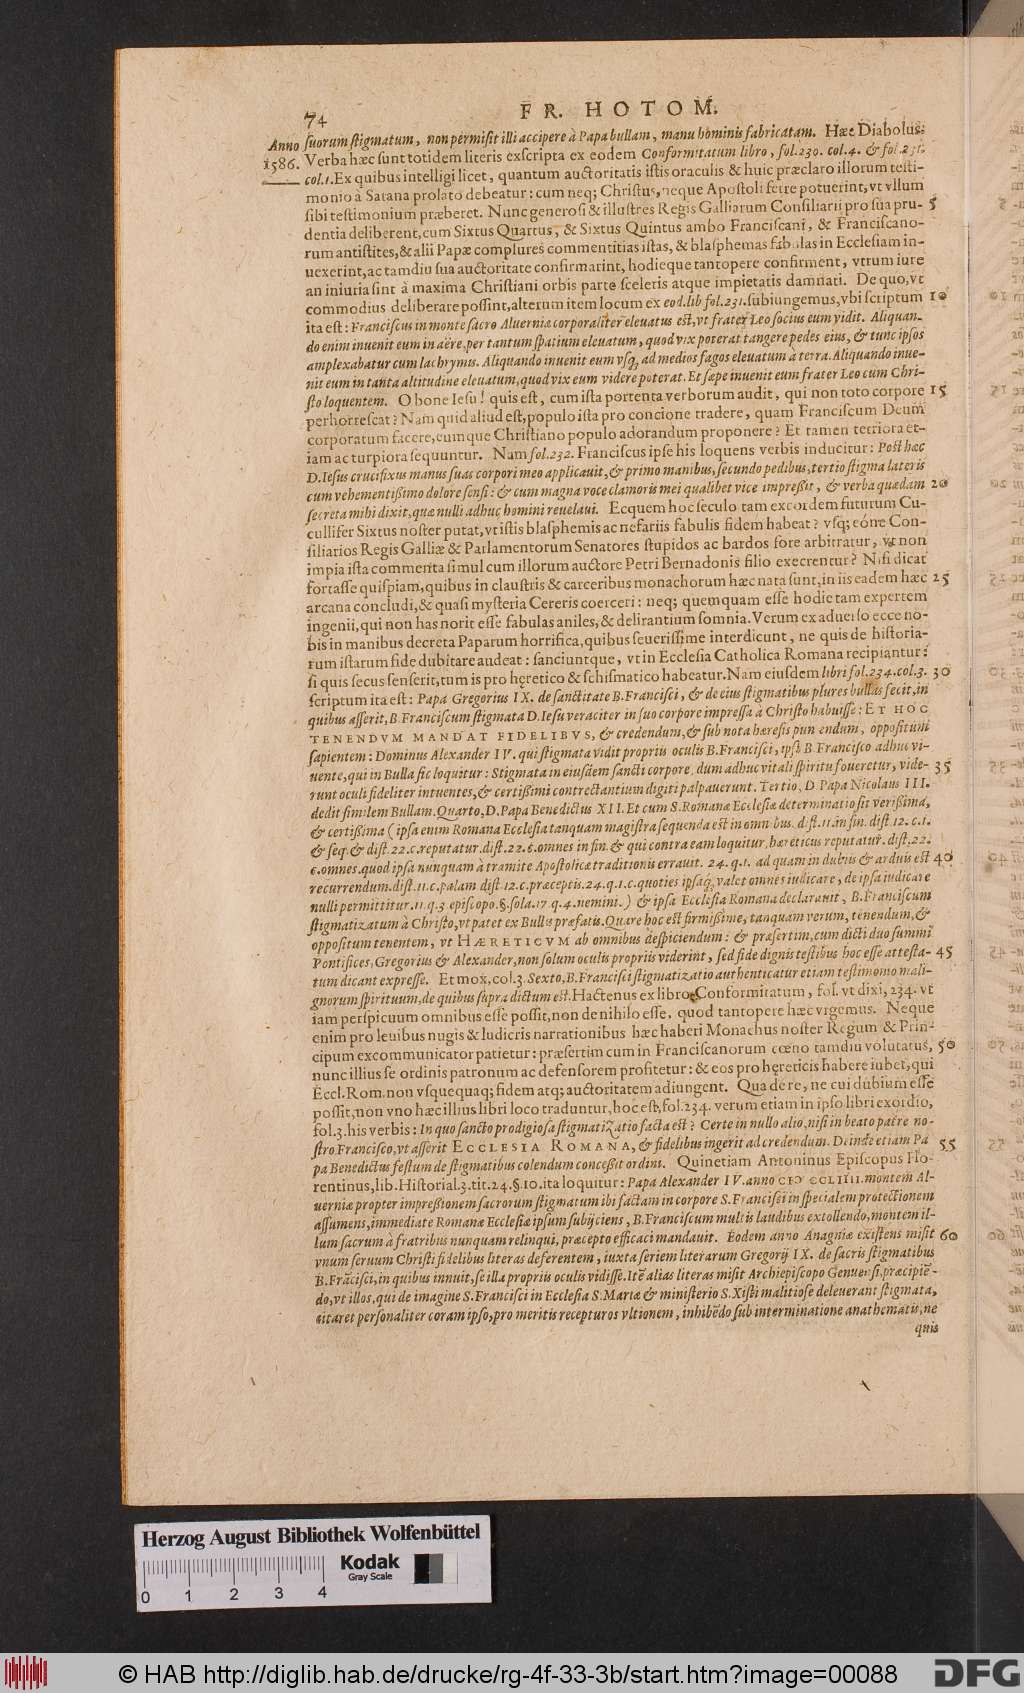 74
FR. HOTOM.
Anno
1586.
suorum stigmatum, non permisit illi accipere à Papa bullam, manu hominis fabricatam. Hæc Diabolus:
Verba hæc sunt totidem literis exscripta ex eodem Conformitatum libro, fol. 230. col. 4. & fol. 231.
col. 1. Ex quibus intelligi licet, quantum auctoritatis istis oraculis & huic præclaro illorum testi-
monio à Satana prolato debeatur: cum neq; Christus, neque Apostoli ferre potuerint, vt vllum
sibi testimonium præberet. Nunc generosi & illustres Regis Galliarum Consiliarij pro sua pru- 5
dentia deliberent, cum Sixtus Quartus, & Sixtus Quintus ambo Franciscani, & Franciscano-
rum antistites, & alii Papæ complures commentitias istas, & blasphemas fabulas in Ecclesiam in-
uexerint, ac tamdiu sua auctoritate confirmarint, hodieque tantopere confirment, vtrum iure
an iniuria sint à maxima Christiani orbis parte sceleris atque impietatis damnati. De quo, vt
commodius deliberare possint, alterum item locum ex eod. lib fol. 231. subiungemus, vbi scriptum 10
ita est: Franciscus in monte sacro Aluerniæ corporaliter eleuatus est, vt frater Leo socius eum vidit. Aliquan-
do enim inuenit eum in aëre, per tantum spatium eleuatum, quod vix poterat tangere pedes eius, & tunc ipsos
amplexabatur cum lachrymis. Aliquando inuenit eum vsq; ad medios fagos eleuatum à terra. Aliquando inue-
nit eum in tanta altitudine eleuatum, quod vix eum videre poterat. Et sæpe inuenit eum frater Leo cum Chri-
sto loquentem. O bone Iesu! quis est, cum ista portenta verborum audit, qui non toto corpore 15
perhorrescat? Nam quid aliud est, populo ista pro concione tradere, quam Franciscum Deum
corporatum facere, eumque Christiano populo adorandum proponere? Et tamen terriora et-
iam ac turpiora sequuntur. Nam fol. 232. Franciscus ipse his loquens verbis inducitur: Post hæc
D. Iesus crucifixus manus suas corpori meo applicauit, & primo manibus, secundo pedibus, tertio stigma lateris
cum vehementissimo dolore sensi: & cum magna voce clamoris mei qualibet vice impressit, & verba quædam 20
secreta mihi dixit, quæ nulli adhuc homini reuelaui. Ecquem hoc seculo tam excordem futurum Cu-
cullifer Sixtus noster putat, vt istis blasphemis ac nefariis fabulis fidem habeat? vsq; eóne Con-
siliarios Regis Galliæ & Parlamentorum Senatores stupidos ac bardos fore arbitratur, vt non
impia ista commenta simul cum illorum auctore Petri Bernadonis filio execrentur? Nisi dicat
fortasse quispiam, quibus in claustris & carceribus monachorum hæc nata sunt, in iis eadem hæc 25
arcana concludi, & quasi mysteria Cereris coerceri: neq; quemquam esse hodie tam expertem
ingenii, qui non has norit esse fabulas aniles, & delirantium somnia. Verum ex aduerso ecce no-
bis in manibus decreta Paparum horrifica, quibus seuerissime interdicunt, ne quis de historia-
rum istarum fide dubitare audeat: sanciuntque, vt in Ecclesia Catholica Romana recipiantur:
si quis secus senserit, tum is pro hęretico & schismatico habeatur. Nam eiusdem libri fol. 234. col. 3. 30
scriptum ita est: Papa Gregorius IX. de sanctitate B. Francisci, & de eius stigmatibus plures bullas fecit, in
quibus asserit, B. Franciscum stigmata D. Iesu veraciter in suo corpore impressa à Christo habuisse: ET HOC
TENENDVM MANDAT FIDELIBVS, & credendum, & sub nota hæresis puniendum, oppositum
sapientem: Dominus Alexander IV. qui stigmata vidit propriis oculis B. Francisci, ipso B. Francisco adhuc vi-
uente, qui in Bulla sic loquitur: Stigmata in eiusdem sancti corpore, dum adhuc vitali spiritu foueretur, vide- 35
runt oculi fideliter intuentes, & certissimi contrectantium digiti palpauerunt. Tertio, D Papa Nicolaus III.
dedit similem Bullam. Quarto, D. Papa Benedictus XII. Et cum S. Romanæ Ecclesiæ determinatio sit verissima,
& certissima (ipsa enim Romana Ecclesia tanquam magistra sequenda est in omnibus. dist. 11. in fin. dist. 12. c. 1.
& seq. & dist. 22. c. reputatur. dist. 22. c. omnes in fin. & qui contra eam loquitur, hæreticus reputatur. dist. 22.
c. omnes. quod ipsa nunquam à tramite Apostolicæ traditionis errauit. 24. q. 1. ad quam in dubiis & arduis est 40
recurrendum. dist. 11. c. palam dist. 12. c. præceptis. 24. q. 1. c. quoties ipsaq; valet omnes iudicare, de ipsa iudicare
nulli permittitur. 11. q. 3 episcopo. §. sola. 17. q. 4. nemini.) & ipsa Ecclesia Romana declarauit, B. Franciscum
stigmatizatum à Christo, vt patet ex Bullis præfatis. Quare hoc est firmissime, tanquam verum, tenendum, &
oppositum tenentem, vt HÆRETICVM ab omnibus despiciendum: & præsertim, cum dicti duo summi
Pontifices, Gregorius & Alexander, non solum oculis propriis viderint, sed fide dignis testibus hoc esse attesta- 45
tum dicant expresse. Et mox, col. 3. Sexto, B. Francisci stigmatizatio authenticatur etiam testimonio mali-
gnorum spirituum, de quibus supra dictum est. Hactenus ex libro Conformitatum, fol. vt dixi, 234. vt
iam perspicuum omnibus esse possit, non de nihilo esse, quod tantopere hæc vrgemus. Neque
enim pro leuibus nugis & ludicris narrationibus hæc haberi Monachus noster Regum & Prin-
cipum excommunicator patietur: præsertim cum in Franciscanorum cœno tamdiu volutatus, 50
nunc illius se ordinis patronum ac defensorem profitetur: & eos pro hęreticis habere iubet, qui
Eccl. Rom. non vsquequaq; fidem atq; auctoritatem adiungent. Qua de re, ne cui dubium esse
possit, non vno hæc illius libri loco traduntur, hoc est, fol. 234. verum etiam in ipso libri exordio,
fol. 3. his verbis: In quo sancto prodigiosa stigmatizatio facta est? Certe in nullo alio, nisi in beato patre no-
stro Francisco, vt asserit ECCLESIA ROMANA, & fidelibus ingerit ad credendum. Deinde etiam Pa 55
pa Benedictus festum de stigmatibus colendum concessit ordini. Quinetiam Antoninus Episcopus Flo-
rentinus, lib. Historial. 3. tit. 24. §. 10. ita loquitur: Papa Alexander IV. anno CIↃ CCLIIII. montem Al-
uerniæ propter impressionem sacrorum stigmatum ibi factam in corpore S. Francisci in specialem protectionem
assumens, immediate Romanæ Ecclesiæ ipsum subijciens, B. Franciscum multis laudibus extollendo, montem il-
lum sacrum à fratribus nunquam relinqui, præcepto efficaci mandauit. Eodem anno Anagniæ existens misit 60
vnum seruum Christi fidelibus literas deferentem, iuxta seriem literarum Gregorij IX. de sacris stigmatibus
B. Frācisci, in quibus innuit, se illa propriis oculis vidisse. Itē alias literas misit Archiepiscopo Genuensi, præcipiē-
do, vt illos, qui de imagine S. Francisci in Ecclesia S. Mariæ & ministerio S. Xisti malitiose deleuerant stigmata,
citaret personaliter coram ipso, pro meritis recepturos vltionem, inhibēdo sub interminatione anathematis, ne
quis
Herzog August Bibliothek Wolfenbüttel
Kodak
Gray Scale
0 1 2 3 4
© HAB http://diglib.hab.de/drucke/rg-4f-33-3b/start.htm?image=00088
DFG